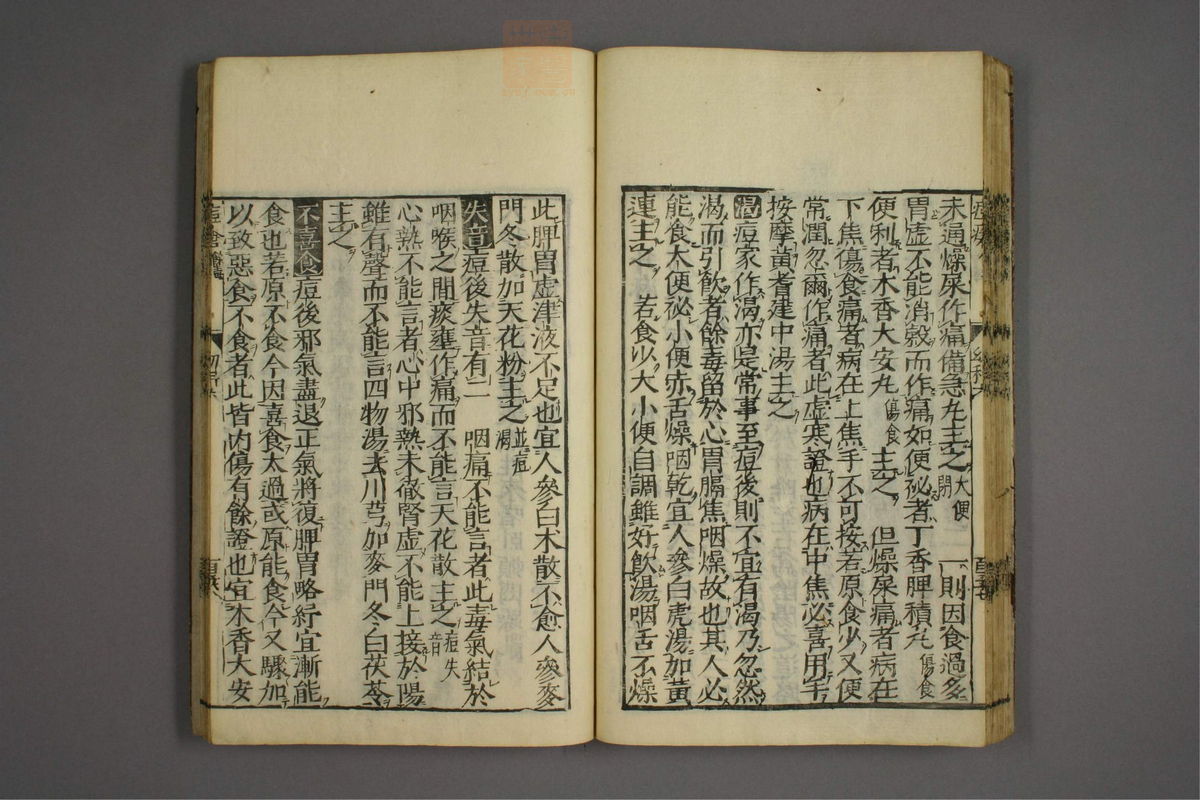 未通燥屎作痛備急丸主之大便閉一則因食過多
胃虚不能消穀而作痛如便秘者丁香脾積丸傷食
便利者木香大安丸傷食主之 但燥屎痛者病在
下焦傷食痛者病在上焦手不可按若原食少又便
常潤忽爾作痛者此虚寒證也病在中焦必喜用手
按摩黄耆建中湯主之
渴痘家作渴亦是常事至痘後則不宜有渴乃忽然
渴而引飲者餘毒留於心胃膈焦咽燥故也其人必
能食大便祕小便赤舌燥咽乾宜人參白虎湯加黄
連主之 若食少大小便自調雖好飲湯咽舌不燥
此脾胃虚津液不足也宜人參白术散不愈人參麥
門冬散加天花粉主之並痘渴
失音痘後失音有二 咽痛不能言者此毒氣結於
咽喉之間痰壅作痛而不能言天花散主之痘失音
心熱不能言者心中邪熱未徹腎虚不能上接於陽
雖有聲而不能言四物湯去川芎加麥門冬白茯苓
主之
不喜食痘後邪氣盡退正氣將復脾胃略紓宜漸能
食也若原不食今因喜食太過或原能食今又驟加
以致惡食不食者此皆内傷有餘證也宜木香大安